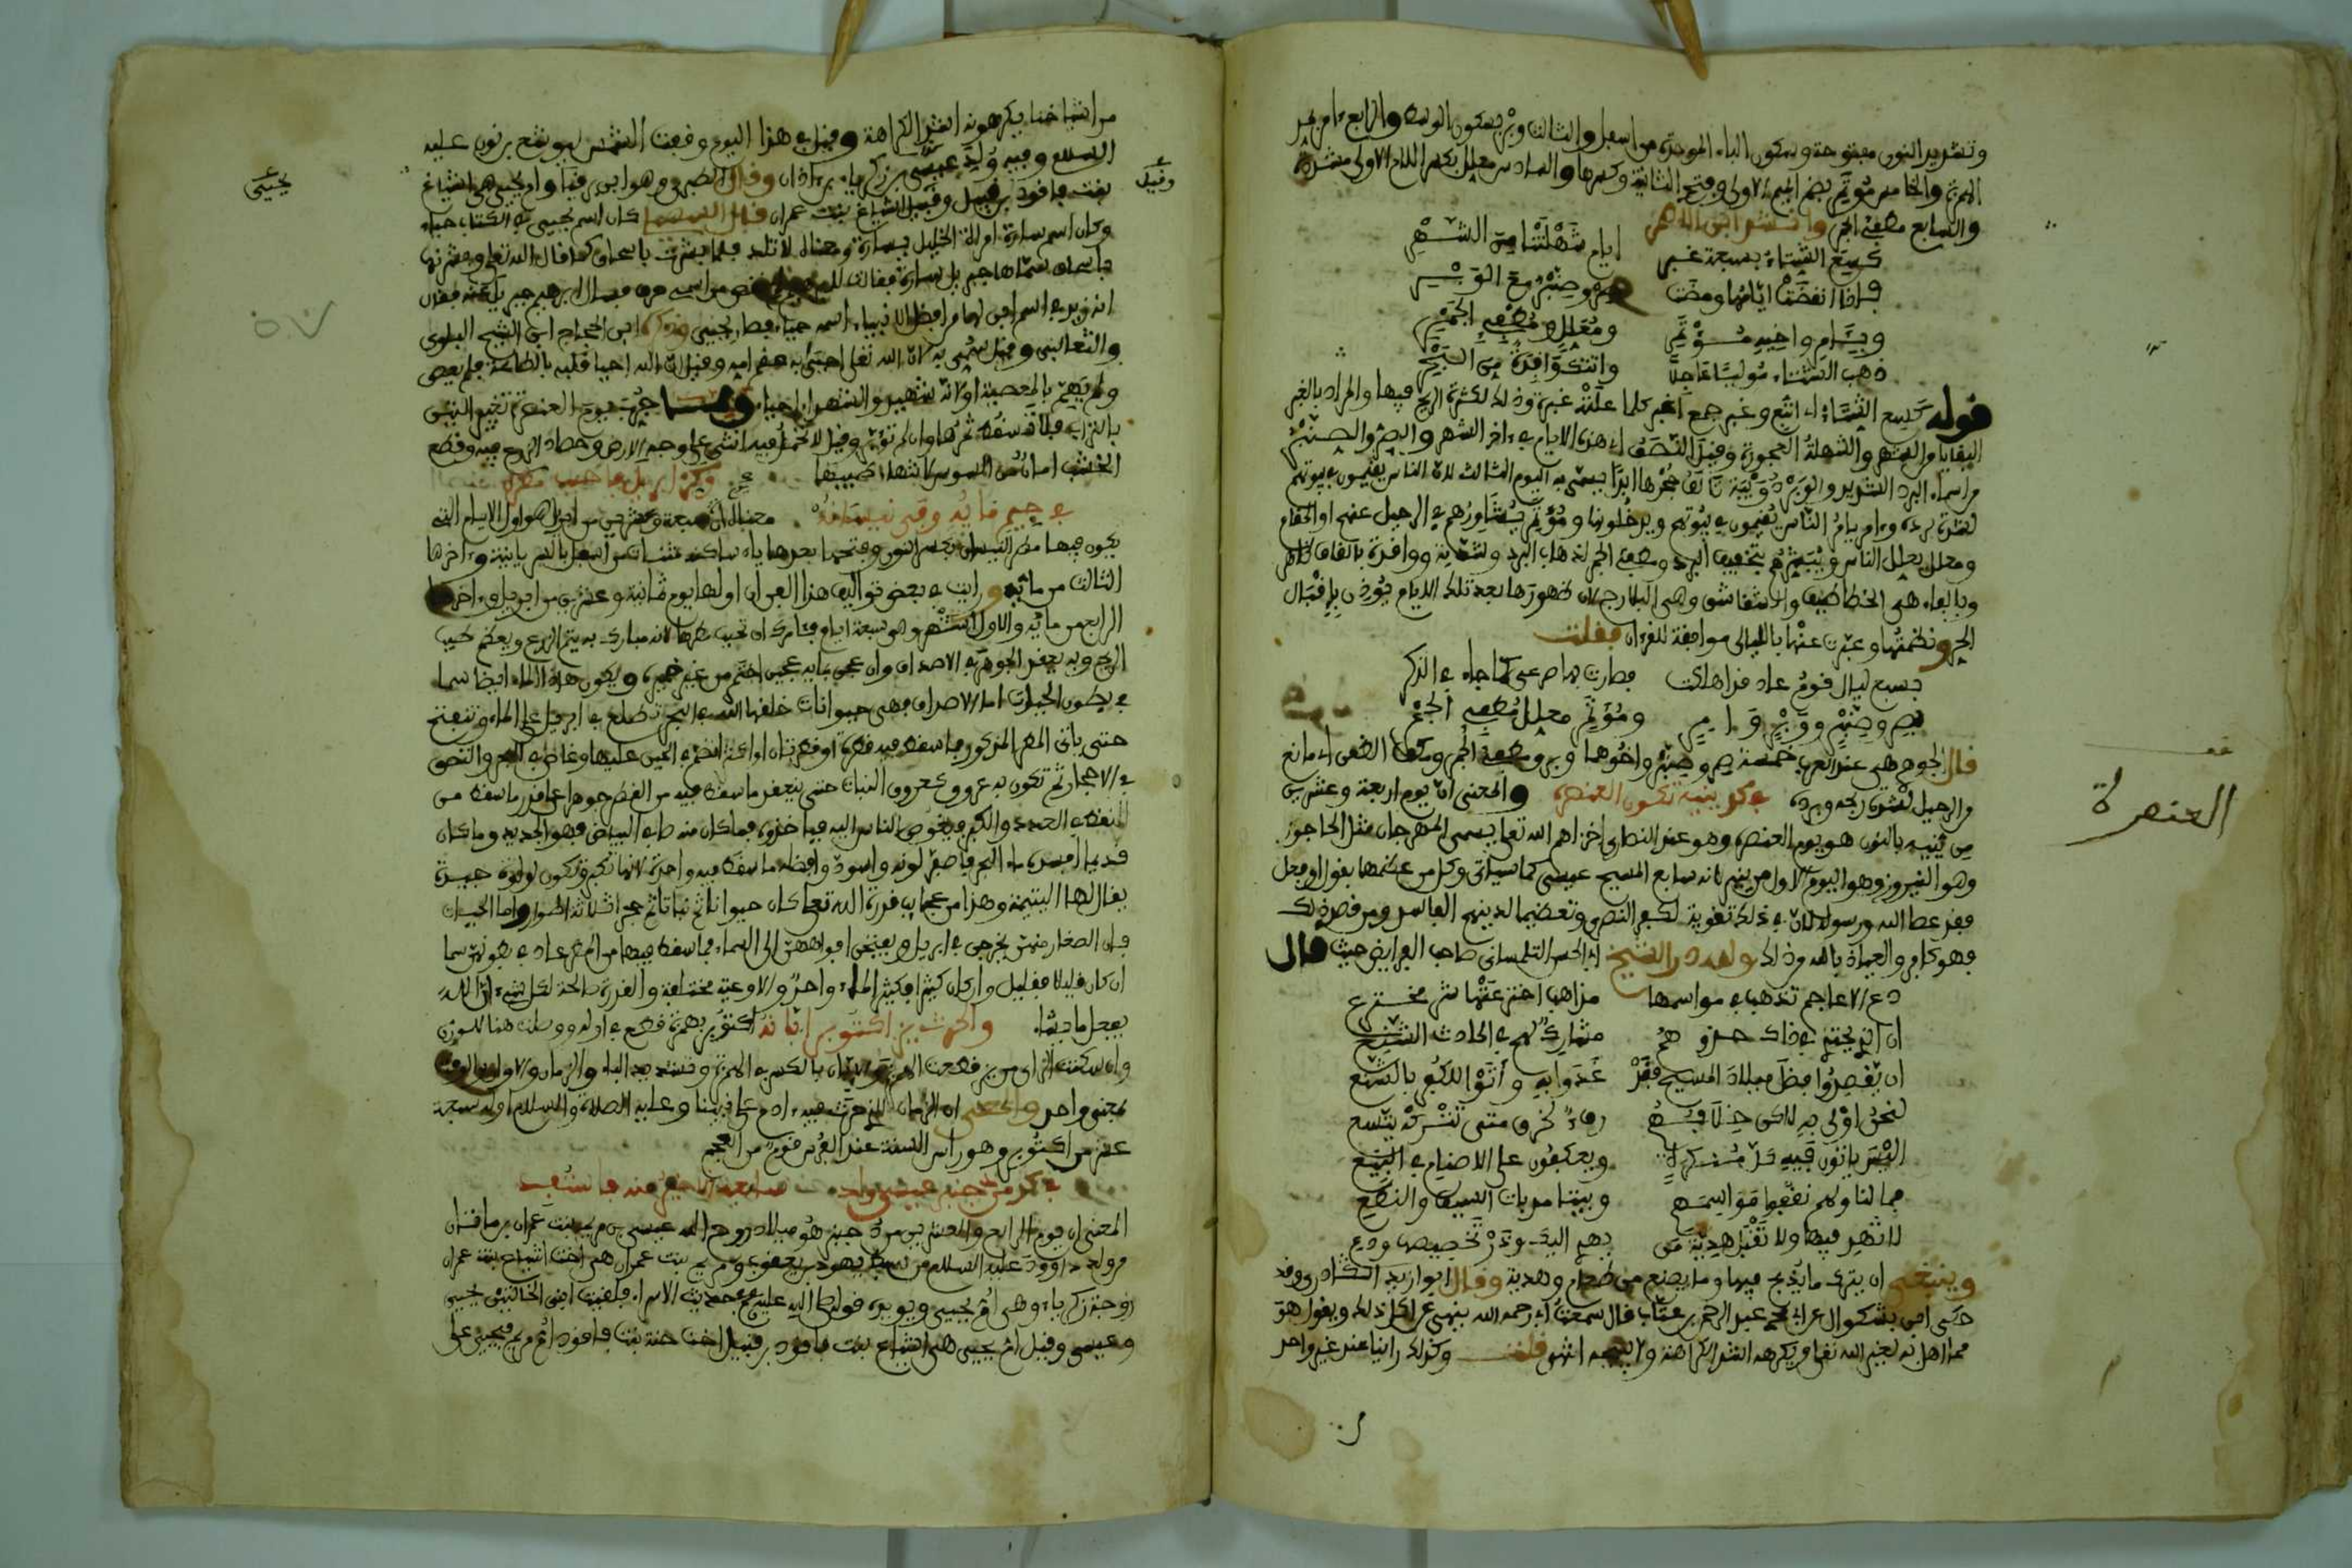 وتشديد النون مفتوحة وسكون الباء الموحدة من اسفل والثالث وبر بسكون الوسط والرابع ءامر بمد
الهمزة والخامس مؤتمر بضم الميم الاولى وفتح الثانية وكسرها والسادس معلل بكسر اللام الاولى مشددة
والسابع مطفئ الجمر وانشد ابن
كسع الشتاء بسبعة غبر ايام شهلتنا من الشهر
فاذا انقضت ايامها ومضت صن وصنبر مع الوبر
وبئامر واخيه مؤتمر ومعلل ومطفئ الجمر
ذهب الشتاء موليا عاجلا واتتك وافدة من
قوله كسع الشتاء اي اتبع وغبر جمع اغبر كلما علته غبرة وذلك لكثرة الريح فيها والمراد بالغبر
البقايا من الشهر والشهلة العجوزة وقيل النصف اي هذه الايام في ءاخر الشهر والصن والصنبر
من اسماء البرد الشديد والوبر دويبة تالف جحرها ابدا يسمى به اليوم الثالث لان الناس يقيمون في بيوتهم
لشدة برده وءامر يامر الناس يقيمون في بيوتهم ويدخلونها ومؤتمر يشاورهم في الرحيل عنهم او المقام
ومعلل يعلل الناس ويبشرهم بتخفيف البرد ومطفئ الجمر لذهاب البرد وشدته ووافدة بالقاف ظاهر
وبالفاء هي الخطاطيف والشقاشق وهي البلارج لان ظهورها بعد تلك الايام يؤذن بإقبال
الحر ونظمتها وعبرت عنها بالليالي موافقة للقرءان فقلت
بسبع ليال قوم عاد قد اهلكت فصارت بها صرعى كما جاء في الذكر
بصن وصنبر ووبر وءامر ومؤتمر معلل مطفئ الجمر
قال الجوهري هي عند العرب خمسة صن وصنبر واخوهما وبر ومطفئ الجمر ومكفئ الظعن اي مانع
من الرحيل لشدة ريحه وبرده في كد ينيه تكون العنصره والمعنى ان يوم اربعة وعشرين
من ينيه بالنون هو يوم العنصرة وهو عند النصارى اخزاهم الله تعلى يسمى المهرجان مثل الحاجوز
وهو النيروز وهو اليوم الاول من ينير لانه سابع المسيح عيسى كما سياتي وكل من عظمها بقول او فعل
فقد عصا الله ورسوله لان في ذلك تقوية لكفر النصرى وتعظيما لدينهم الفاسد ومن قصد ذلك
فهو كافر والعياذ بالله من ذلك ولله در الشيخ ابى الحسن التلمسانى صاحب الفرايض حيث قال
دع الاعاجم تذهب في مواسمها مذاهبا اخترعتها شر مخترع
ان الذى يحتذى في ذاك حذوهم مشارك لهم في الحادث الشنع
ان يقصدوا فيه ميلاد المسيح فقد غدوا به واتوا للكفر بالشنع
لنحن اولى به لاكن خلافهم رفء لخرق متى تتركه يتسع
اليس ياتون فيه كل منكرة ويعكفون على الاصنام في البيع
فما لنا ولهم نقفوا مواسمهم وبيننا مرهبات السيف والنطع
لا تهد فيها ولا تقبل هدية من يهدي اليك وذر تخصيصها ودع
وينبغى ان يترك ما يذبح فيها وما يصنع من طعام وهدية وقال ابو زيد وقد
حكى ابن بشكوال عن ابى محمد عبد الرحمن بن عتاب قال سمعت ابى رحمه الله ينهى عن اكل ذلك ويقول هو
مما اهل به لغير الله تعلى ويكرهه اشد الكراهة ولا قلت وكذلك راينا عند غير واحد
العنصرة
من اشياخنا يكرهونه اشد الكراهة وقيل في هذا اليوم وقفت الشمس ليوشع بن نون عليه
السلام وفيه ولد يحيى بن زكرياء بن ءاذان وقال الطبري وهو ابن برخيا وام يحيى هي اشياع
بنت فاقود بن قبيل وقيل اشياع بنت عمران قال كان اسم يحيى في الكتاب حياء
وكان اسم سارة امراة الخليل يسارة ومعناه لا تلد فلما بشرت باسحاق كما قال الله تعلى وبشرنها
باسحاق سماها جبريل سارة فقالت نقص من اسمي حرف فسال ابرهيم جبريل عنه فقال
انه زيد في اسم ابن لها من افضل الانبياء اسمه حياء فصار يحيى وذكره ابن الحجاج ابن الشيخ البلوى
والثعالبى وقيل سمي به لان الله تعلى احيى به عقم امه وقيل لان الله احيا قلبه بالطاعة فلم يعص
ولم يهم بالمعصية او لانه شهيد والشهداء احياء ومما جرب يوم العنصرة تغبير التين
بالتراب فلا يسقط ثمرها وان لم تؤبر وقيل لا تحمل فيه انثى على وجه الارض وحصاد الزرع فيه وقطع
الخشب امان من السوس لانتهاء طبيبها وكز ابريل
في جيم مايه وقى نيسانه معناه ان سبعة وعشرين من ابريل هو اول الايام التى
يكون فيها مطر النيسان بكسر النون وفتحها بعدها ياء ساكنة مثناة من اسفل بالسريانية وءاخرها
الثالث من مايه ورايت في بعض تواليف هذا الفن ان اولها يوم ثمانية وعشرين من ابريل وءاخرها
الرابع من مايه والاول اشهر وهو سبعة ايام
الريح وبه يعقد الجوهر في الاصداف وان عجن بمايه عجين اختمر من غير خمير ويكون هذا الماء ايضا سما
في بطون الحيات اما الاصداف فهي حيوانات خلقها الله في البحر تطلع في ابريل على الماء وتنفتح
حتى ياتى المطر المذكور فما سقط فيه قطرة او قطرتان او اكثر انضم في الحين عليها وغاص في البحر والتصق
في الاحجار ثم تكون به عروق كعروق النبات حتى ينعقد ما سقط فيه من القطر جوهرا على قدر ما سقط من
النقط في العدد والكبر فيغوص الناس اليه فياخذونه فما كان منه صافي البياض فهو الجديد وما كان
قديما افسده ماء البحر فاصفر لونه واسود وافضله ما سقط فيه واحدة لانها تكبر وتكون لؤلؤة جيدة
يقال لها اليتيمة وهذا من عجايب قدرة الله تعلى كان حيوانا ثم نباتا ثم حجرا ثلاثة اطوار واما الحيات
فان الصغار منهن يخرجن في ابريل ويفتحن افواههن الى السماء فما سقط فيها من المطر عاد في بطونهن سما
ان كان قليلا فقليل وان كان كثيرا فكثير الماء واحد والاوعية مختلفة والقدرة صالحة لكل شيء ان الله
يفعل ما يشاء والحرث يز اكتوبر ابانه اكتوبر بهمزة قطع في اوله ووصلت هنا للوزن
وان سكنت الزاى من يز قطعت الهمزة والابان بالكسر في الهمزة وتشديد الباء والزمان والاوان والوقت
بمعنى واحد والمعنى ان الزمان الذى حرث فيه ءادم على نبينا وعليه الصلاة والسلام اوله سبعة
عشر من اكتوبر وهو راس السنة عند الفرس قوم من العجم
في كد من دجنبر عيسى ولد سابعه ينير منه ما
المعنى ان يوم الرابع والعشرين من دجنبر هو ميلاد روح الله عيسى بن مريم بنت عمران بن ماثان
من ولد داوود عليه السلام من سبط يهود بن يعقوب ومريم بنت عمران هي اخت اشياع بنت عمران
زوجة زكرياء وهى ام يحيى ويويده قوله صلى الله عليه وسلم في حديث الاسراء فلقيت ابنى الخالتين يحيى
وعيسى وقيل ام يحيى هى اشياع بنت فاقود بن قبيل اخت حنة بنت فاقود ام مريم فيحيى على
يحيى
وقيل